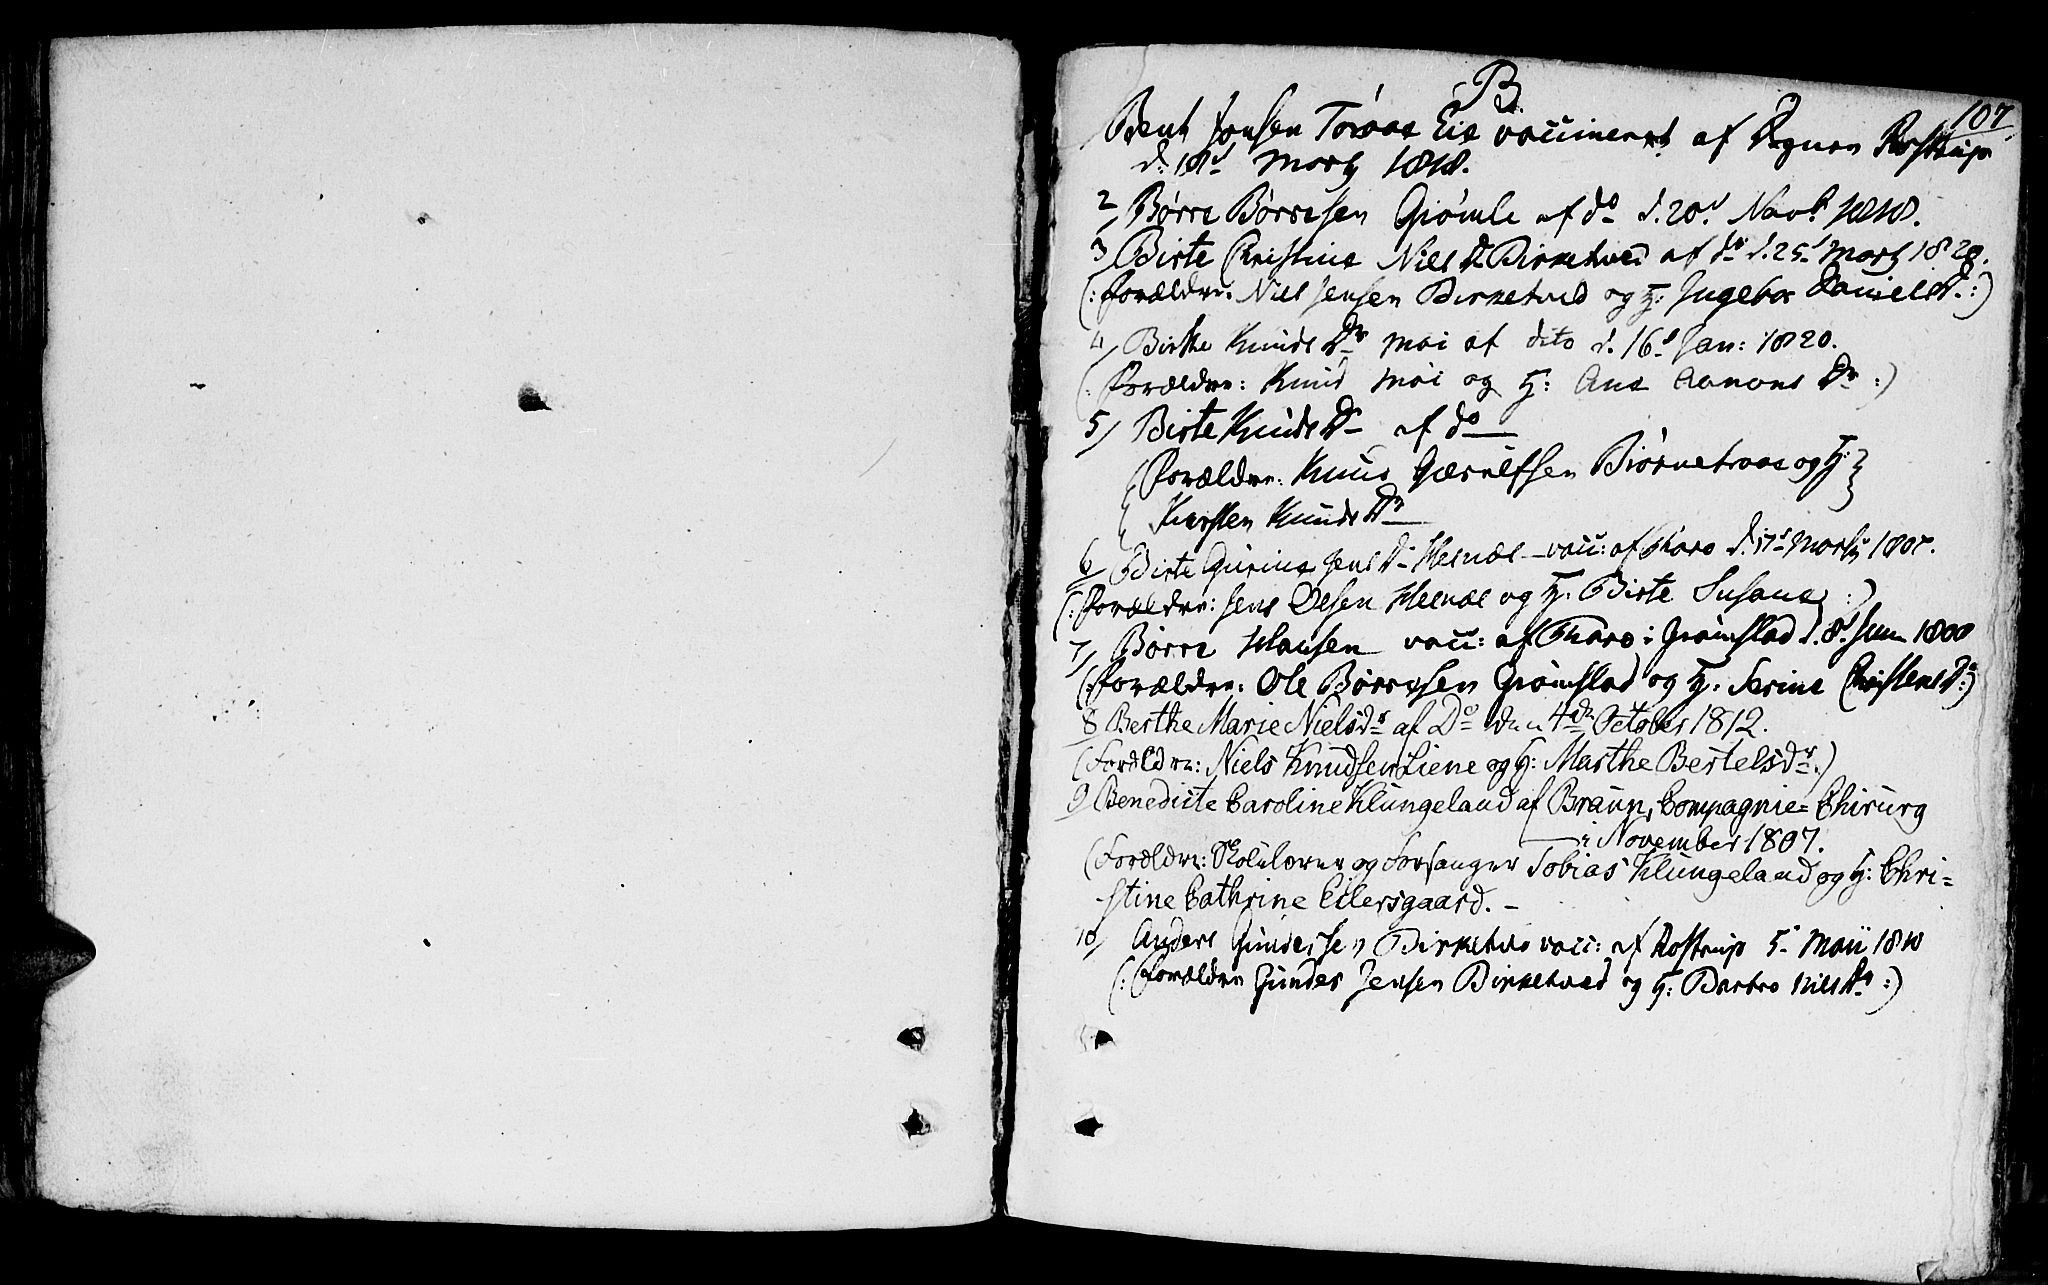 B.
107
Bent Jensen Toraas Eie vaccineret af Degnen Rostrup
d: 18d Marty 1818.
2/ Børre Børresen Grømle af do d. 20d Novb. 1818.
3/ Birte Christine NielsDr Birketved af do d. 25d Marty 1820.
(: Forældre: Niels Jensen Birketved og H: Ingebor DanielsDr :)
4/ Birthe KnudsDr Moi af dito d. 16d Jan: 1820.
(: Forældre: Knud Moi og H: Ane AanonsDr :)
5/ Birte KnudsDr af do
(Forældre: Knud Gierulfsen Biørnetraae og H:
Kirsten KnudsDr
6/ Birte Gurine JensDr Hesnæs vacc: af Tharo d. 17d Marty 1807.
(: Forældre: Jens Olsen Hesnæs og H: Birte Susane :)
7/ Børre Hansen vacc: af Tharo i Grømstad d. 8d Juni 1808
(: Forældre: Ole Børresen Grømstad og H: Serine ChristensDr :)
8 Berthe Marie Nielsdr af Do den 4de October 1812.
(Forældre: Niels Knudsen Liene og H: Marthe Bertelsdr.)
9 Benedicte Caroline Klungeland af Braun, Compagnie=Chirurg
i November 1807.
(Forældre: Skolelærer og Forsanger Tobias Klungeland og H: Chri=
stine Cathrine Eilersgaard. –
10/ Anders Gundersen Birketved vacc: af Rostrup 5. Maii 1810
(: Forældre Gunder Jensen Birketved og H: Barbro NielsDr :)